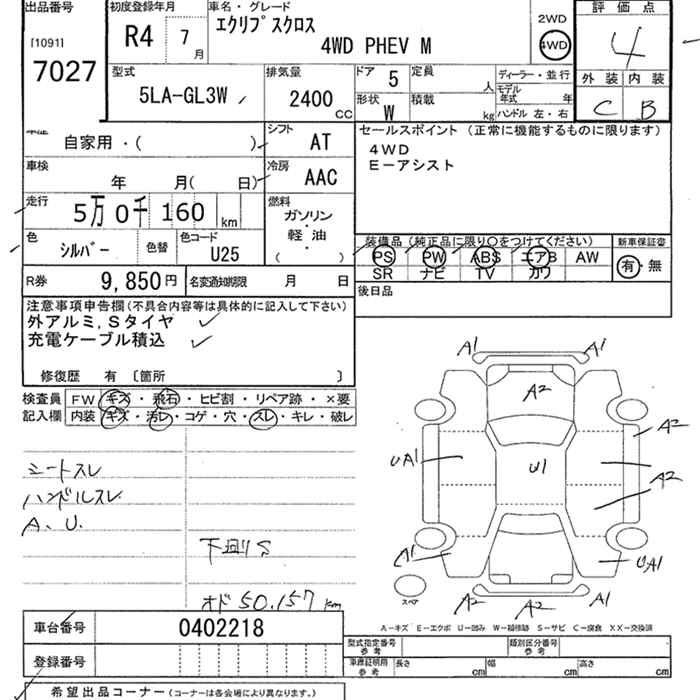 出品番号
[1091]
7027
初度登録年月
R4 7月
車名・グレード
エクリプスクロス
4WD PHEV M
2WD
4WD
評価点
4
外装 内装
C B
型式
5LA-GL3W
排気量
2400 CC
ドア 5
定員 人
形状 W
積載 kg
ディーラー・並行
モデル年式 年
ハンドル 左・右
自家用・( )
シフト AT
車検
年 月( 日)
冷房 AAC
走行
5万0千160 km
燃料
ガソリン
・
軽・油
( ・ )
色
シルバー
色替
色コード
U25
R券 9,850円
名変通知期限 月 日
セールスポイント (正常に機能するものに限ります)
4WD
E-アシスト
装備品 (純正品に限り○をつけてください)
新車保証書
PS PW ABS エアB AW
有・無
SR ナビ TV カワ
後日品
注意事項申告欄(不具合内容等は具体的に記入して下さい)
外アルミ,Sタイヤ
充電ケーブル積込
修復歴 有 〔箇所 〕
検査員 FW キズ・飛石・ヒビ割・リペア跡・×要
記入欄 内装 キズ・汚レ・コゲ・穴・スレ・キレ・破レ
シートスレ
ハンドルスレ
A、U.
下廻りS
オド50.157km
A1 A1
A2
A2
UA1
U1
A2
A1
UA1
スペア
A2 A2 A1
A-キズ E-エクボ U-凹み W-補修跡 S-サビ C-腐食 XX-交換済
車台番号 0402218
登録番号
型式指定番号 参考
類別区分番号 参考
車庫証明用 参考 長さ cm 幅 cm 高さ cm
希望出品コーナー (コーナーは各会場により異なります。)